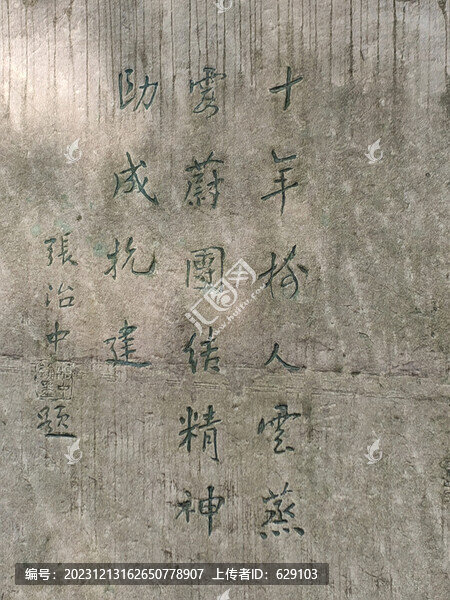 十年樹人雲蒸
霞蔚團結精神
助成抗建
張治中題
汇图网
编号：20231213162650778907 上传者ID：629103